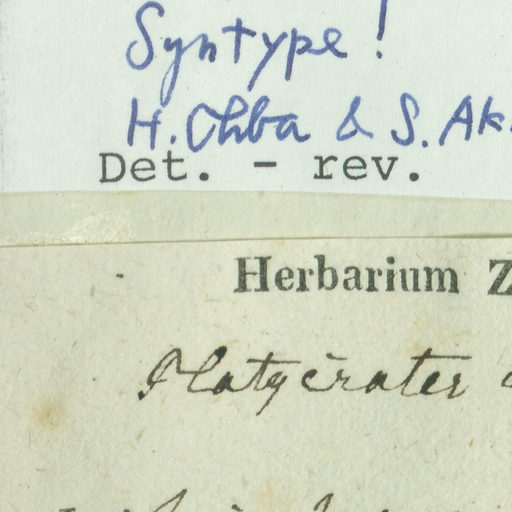 Syntype!
H. Ohba & S. Ak
Det. - rev.
Herbarium Z
Platycrater